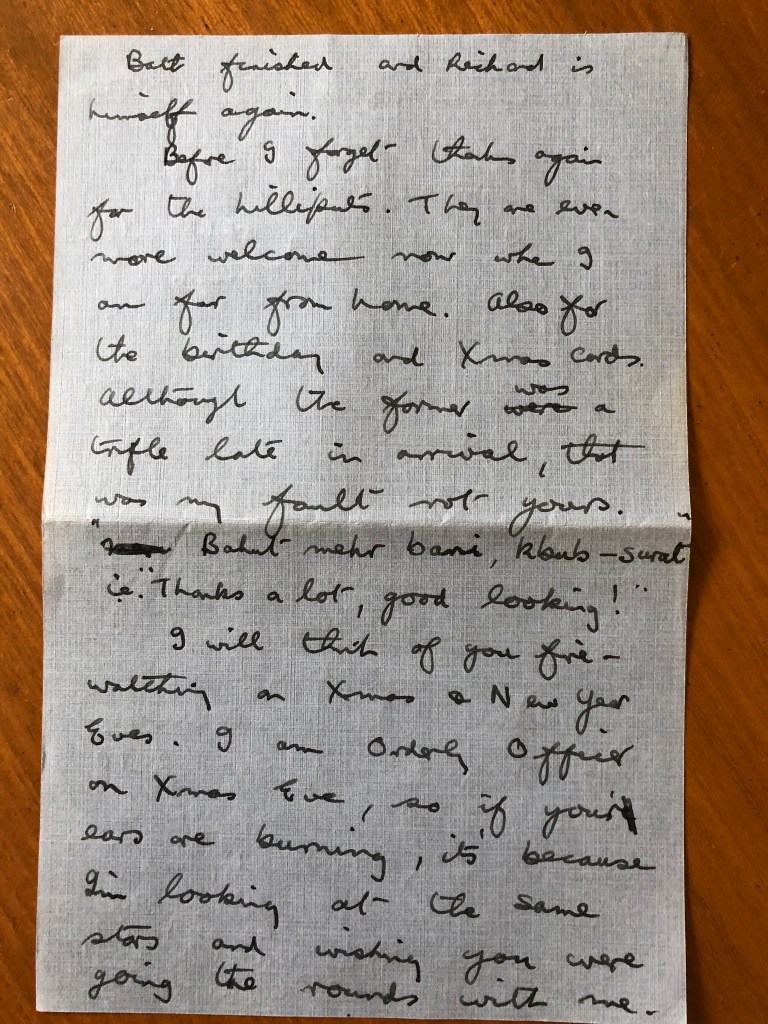 Batt finished and Richard is
himself again.
Before I forget thanks again
for the Lilliputs. They are even
more welcome now when I
am far from home. Also for
the birthday and Xmas cards.
Although the former was were a
trifle late in arrival, that
was my fault not yours.
" Bahut mehr bani, khub-surat"
i.e. "Thanks a lot, good looking!"
I will think of you fire-
watching on Xmas & New Year
Eves. I am Orderly Officer
on Xmas Eve, so if your
ears are burning, its because
I'm looking at the same
stars and wishing you were
going the rounds with me.